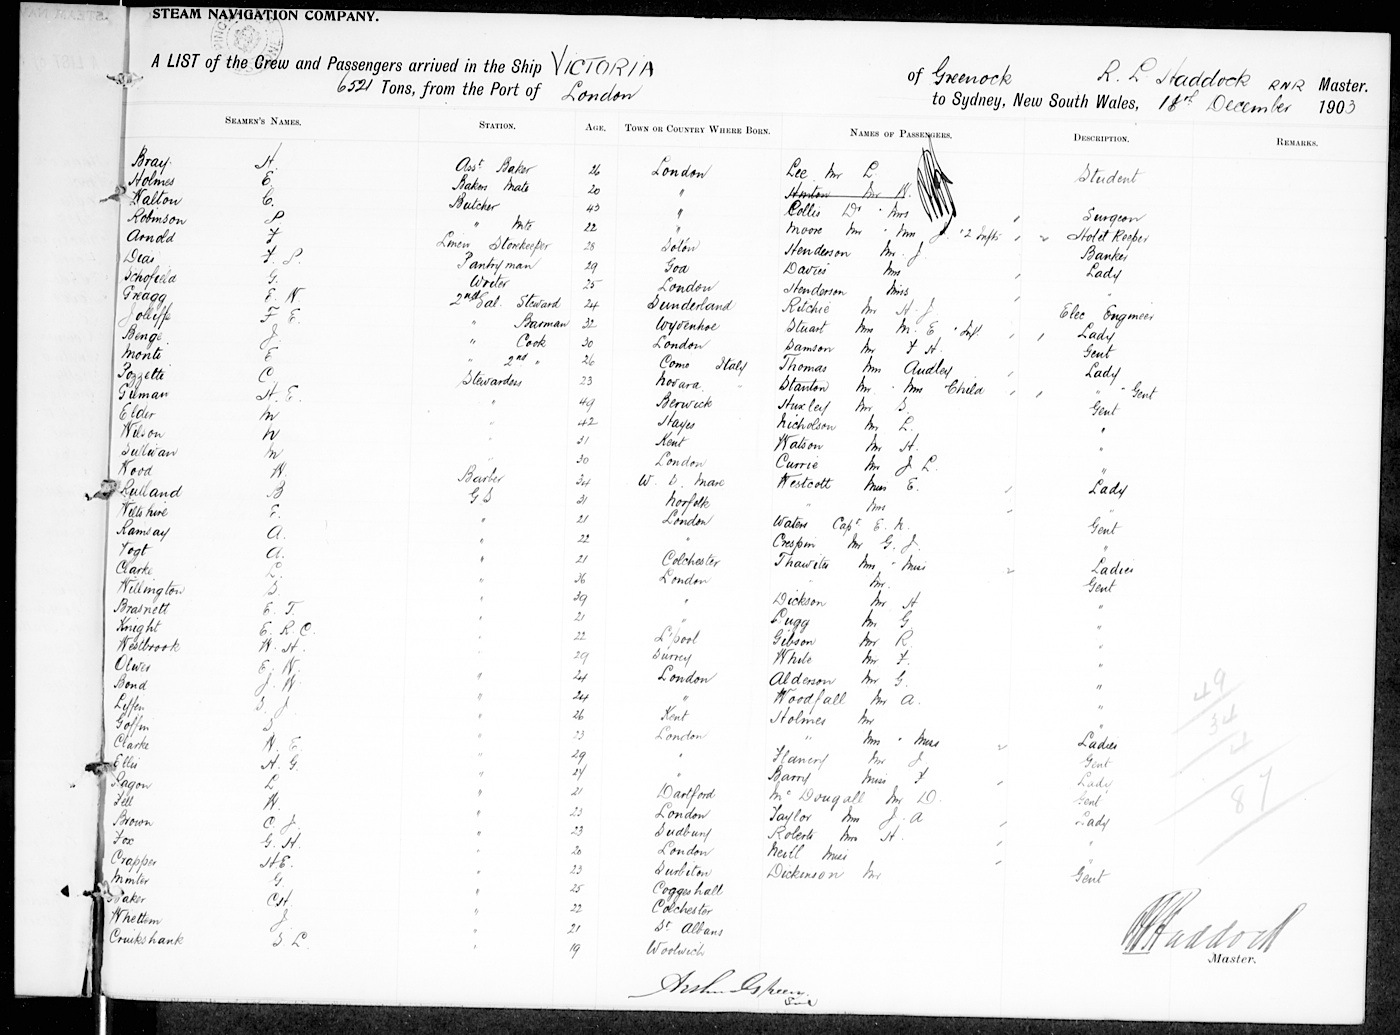 STEAM NAVIGATION COMPANY.
A LIST of the Crew and Passengers arrived in the Ship VICTORIA of Greenock R. L. Haddock RNR Master.
6521 Tons, from the Port of London to Sydney, New South Wales, 18th December 1903
SEAMEN'S NAMES. STATION. AGE. TOWN OR COUNTRY WHERE BORN. NAMES OF PASSENGERS. DESCRIPTION. REMARKS.
Bray H. Asst Baker 26 London Lee Mr L Student
Holmes E. Bakers Mate 20 " Hinton Mr W.
Walton C. Butcher 43 " Collis Dr " Mrs " Surgeon
Robinson P " Mte 22 " Moore Mr " Mrs J. " 2 Infts " " Hotel Keeper
Arnold F Linen Storekeeper 28 Solon Henderson Mr J. Banker
Dias F. P. Pantryman 29 Goa Davies Mrs " Lady
Schofield G. Writer 25 London Henderson Miss " "
Gragg E. W. 2nd Sal. Steward 24 Sunderland Ritchie Mr H. J Elec Engineer
Jolliffe F E. " Barman 32 Wyvenhoe Stuart Mrs M. E " Inft " " Lady
Benge J. " Cook 30 London Samson Mr F H. Gent
Monti E " 2nd " 26 Como Italy Thomas Mrs Audley " Lady
Pozzetti C. Stewardess 23 Novara " Stanton Mr " Mrs " Child " " " " Gent
Gilman H. E. " 49 Berwick Huxley Mr S. Gent
Elder M " 42 Hayes Nicholson Mr L. "
Wilson M " 31 Kent Watson Mr H. "
Sullivan M " 30 London Currie Mr J L. "
Wood W. Barber 34 W. S. Mare Westcott Miss E. " Lady
Rutland B G.S 31 Norfolk " Mrs " "
Wiltshire E. " 21 London Waters Capt E. N. Gent
Ramsay A. " 22 " Crespin Mr G. J. "
Vogt A. " 21 Colchester Thawites Mrs " Miss " Ladies
Clarke L. " 36 London " Mr. Gent
Willington S. " 39 " Dickson Mr H "
Brasnett E. T. " 21 " Pugg Mr G. "
Knight E. R. C. " 22 L'pool Gibson Mr R. "
Westbrook W. H. " 29 Surrey White Mr F. "
Oliver E. W. " 24 London Alderson Mr G. "
Bond J. W. " 24 " Woodfall Mr A. "
S. J. " 26 Kent Holmes Mr "
Goffin S. " 23 London " Mrs " Miss " Ladies
Clarke W. E. " 29 " Flanery Mr J. Gent
Ellis H. G. " 21 " Barry Miss F " Lady
Ragon L " 21 Dartford McDougall Mr D. Gent
Fell W. " 23 London Taylor Mrs J. A " Lady
Brown C. J. " 23 Sudbury Roberts Mrs H. " "
Fox G. H. " 20 London Neill Miss " "
Crapper H. E. " 23 Surbiton Dickinson Mr Gent
Minter G. " 25 Coggeshall
Baker C H. " 22 Colchester
Whettem J. " 21 St Albans
Cruikshank S. L. " 19 Woolwich
49
34
4
87
R L Haddock
Master.